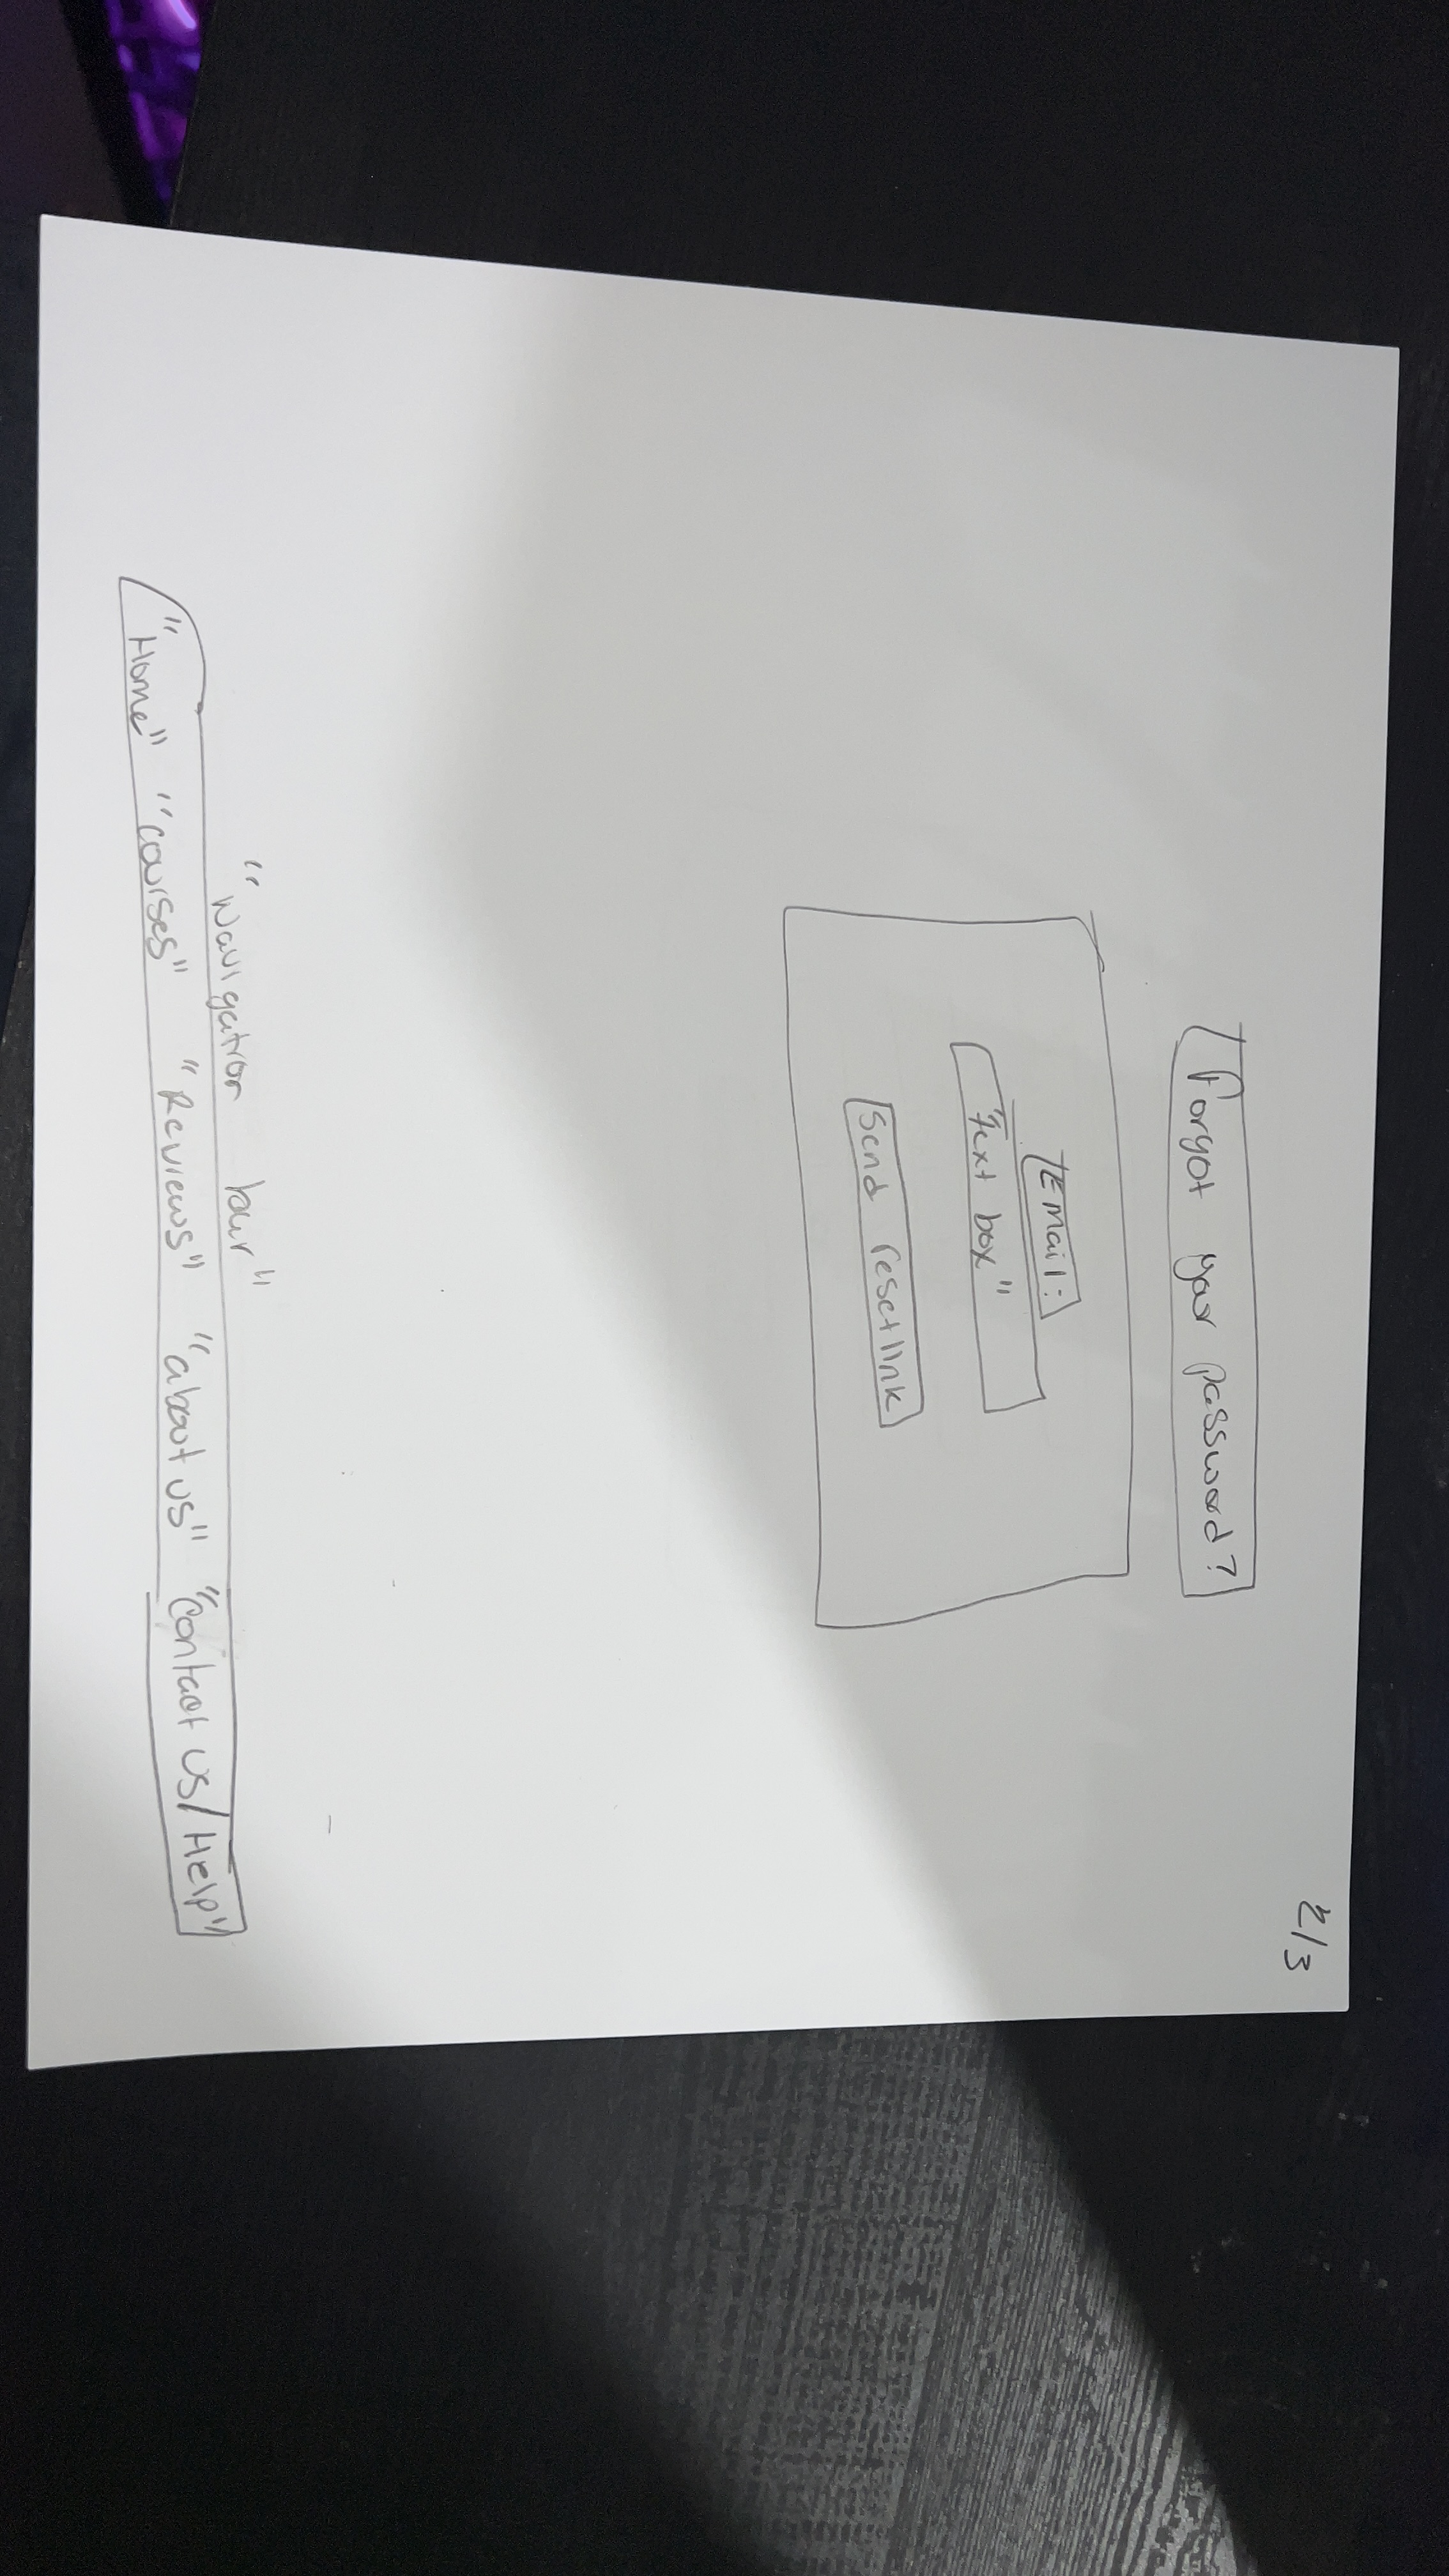 2/3
Forgot your password?
Email:
"Text box"
Send reset link
"Navigation bar"
"Home" "courses" "Reviews" "about us" "Contact us/Help"